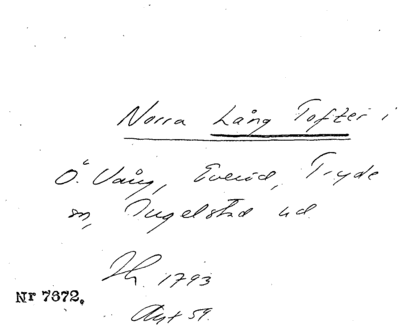 Norra Lång Tofter i
Ö. Vång, Everöd, Tryde
sn, Ingelstad hd.
Sk. 1793
Akt 59.
Nr 7372.